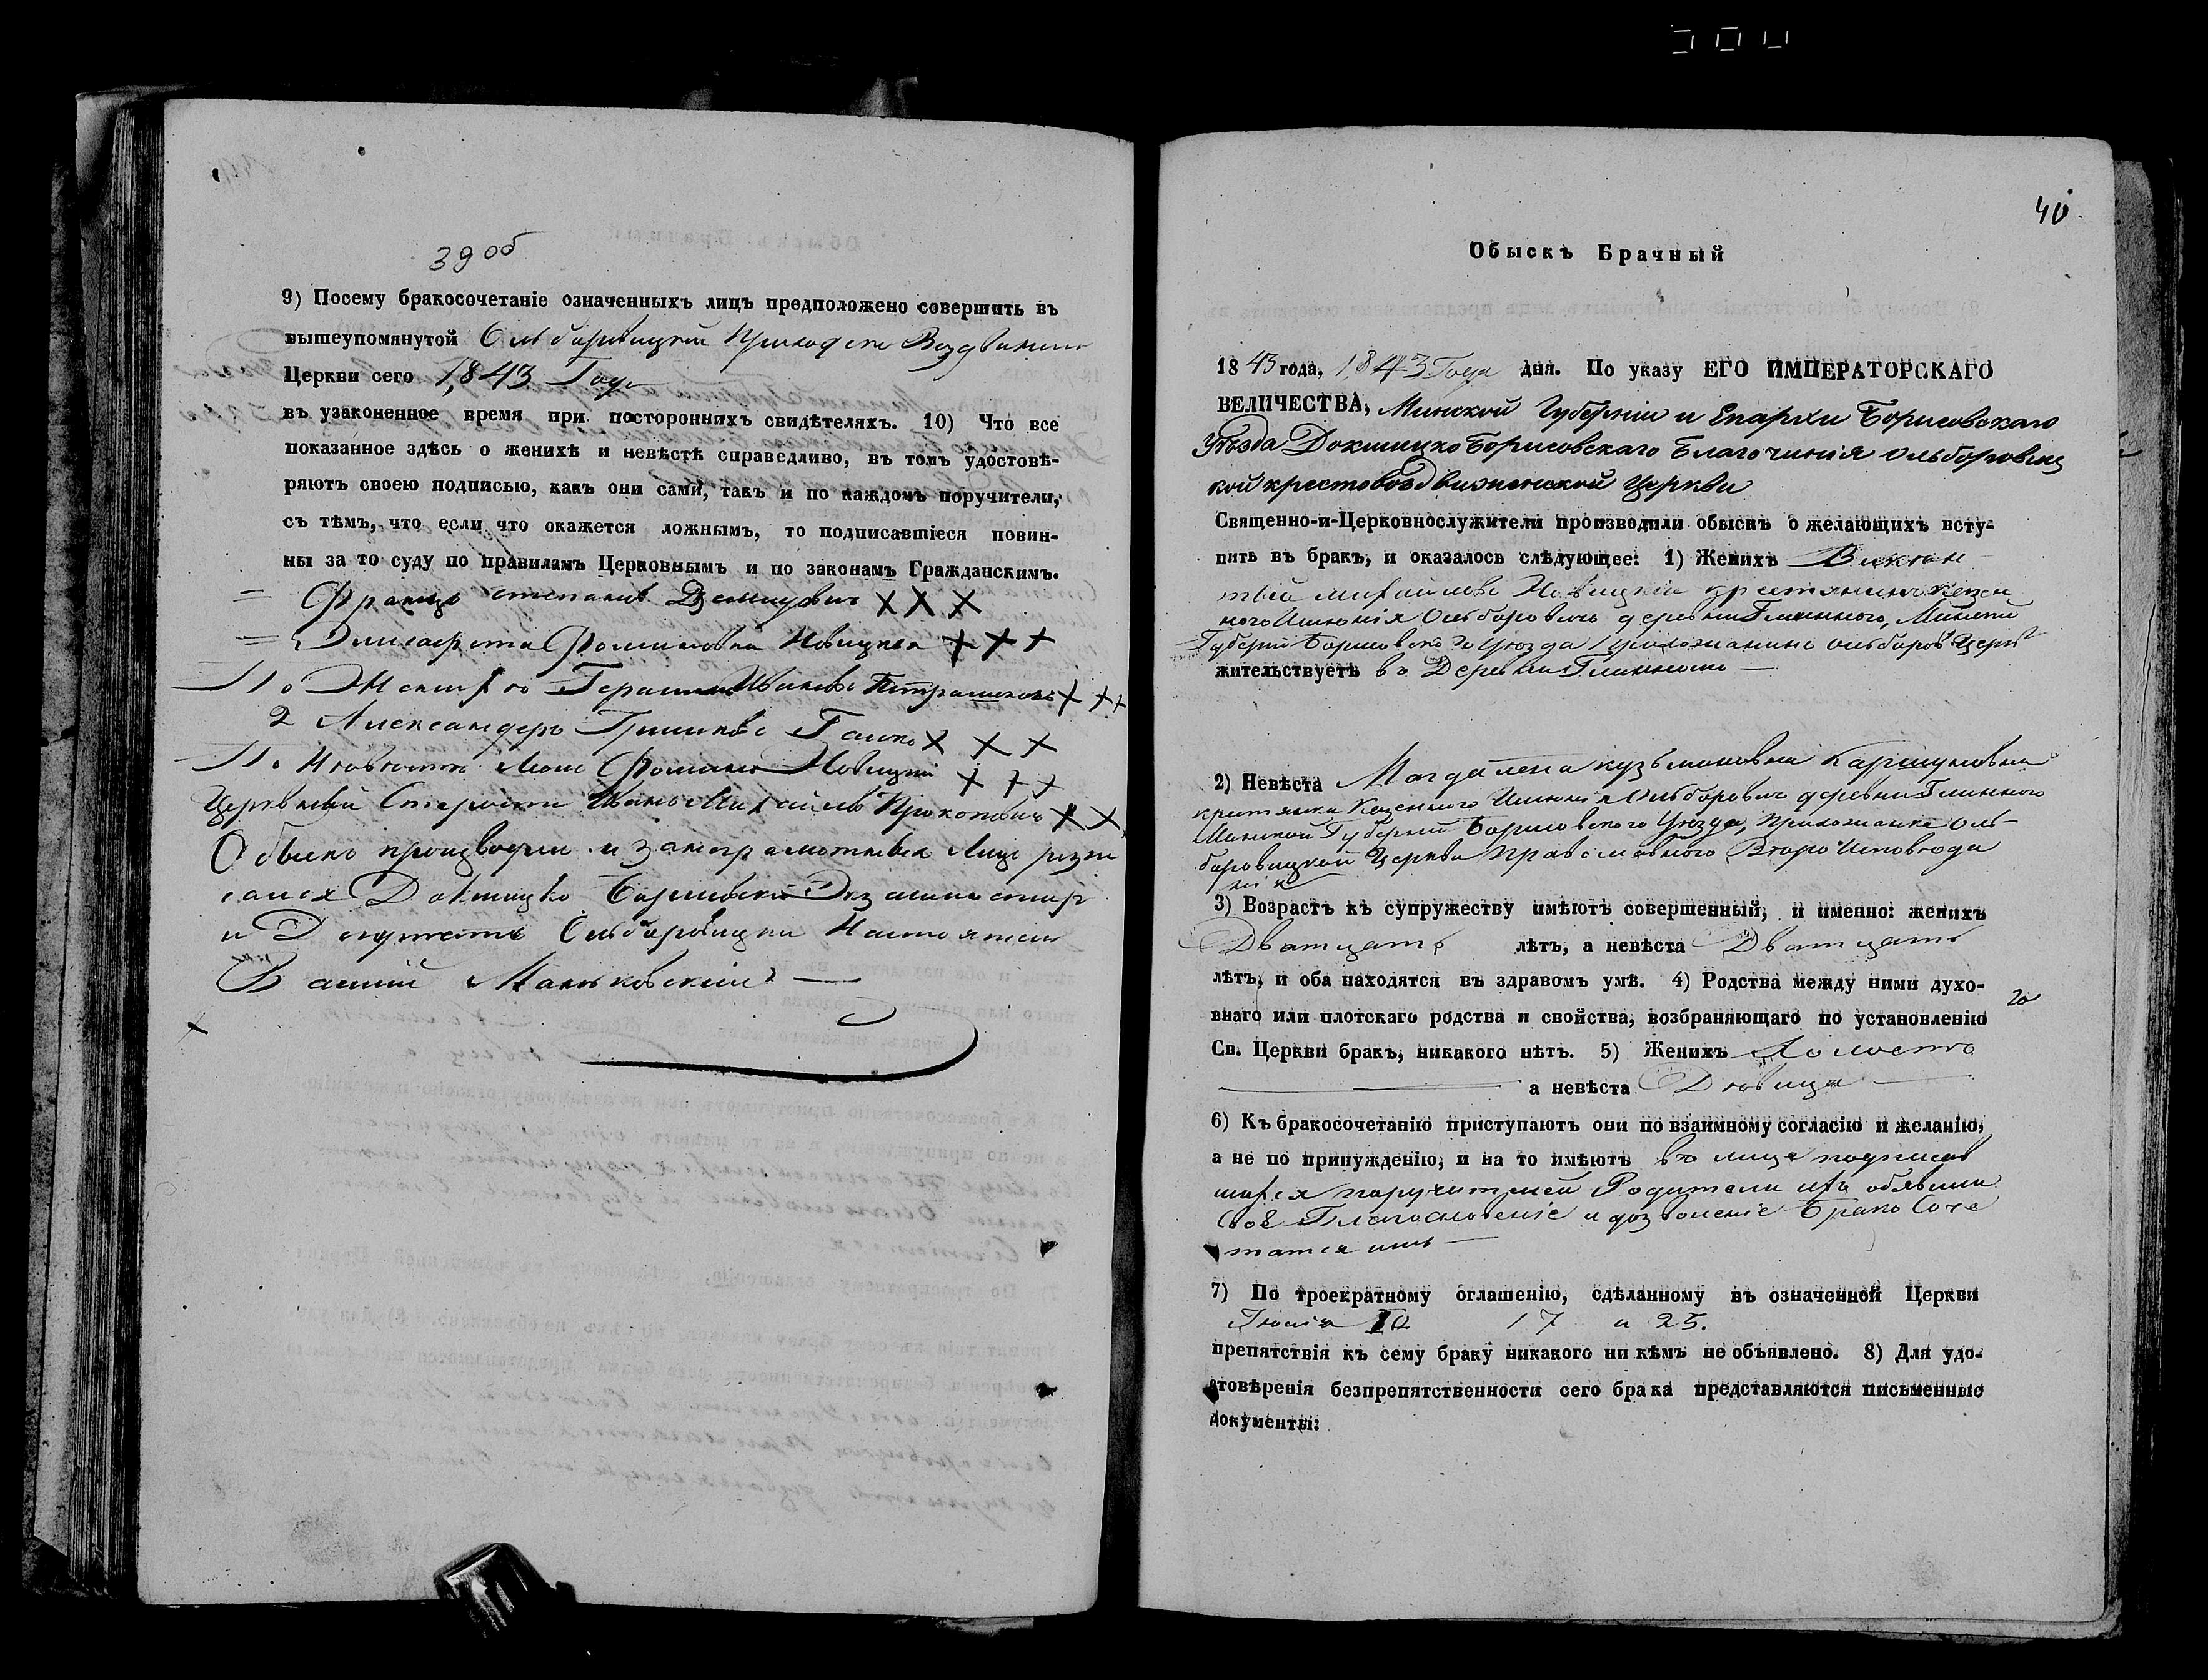 39 об
9) Посему бракосочетаніе означенныхъ лицъ предположено совершить въ
вышеупомянутой Ольборовицкой
Церкви сего 1843 Года
въ узаконенное время при постороннихъ свидѣтеляхъ. 10) Что все
показанное здѣсь о женихѣ и невѣстѣ справедливо, въ томъ удостовѣ-
ряютъ своею подписью, какъ они сами, такъ и по каждомъ поручители,
съ тѣмъ, что если что окажется ложнымъ, то подписавшіеся повин-
ны за то суду по правиламъ Церковнымъ и по законамъ Гражданскимъ.
Францъ Степановъ XXX
Новицка XXX
По Иванов XXX
2 Александеръ XXX
По Новицкій XXX
Церковный Староста Иванъ Михайловъ Прокоповичъ XX
Обыскъ производили и за неграмотныхъ лицъ
Докшицко Борисовскій
и Депутатъ Ольборовицкій Настоятель
Маньковскій
40
Обыскъ Брачный
1843 года, 1843 Года дня. По указу ЕГО ИМПЕРАТОРСКАГО
ВЕЛИЧЕСТВА, Минской Губерніи и Епархи Борисовскаго
Уѣзда Докшицко Борисовскаго Благочинія Ольборовиц
кой крестовоздвиженской Церкви
Священно-и-Церковнослужители производили обыскъ о желающихъ всту-
пить въ бракъ, и оказалось слѣдующее: 1) Женихъ Викен
тій Михайловъ Новицкій крестянинъ Казен
ного Имѣнія Ольборовичъ деревни Глинного, Минской
Губерніи Борисовского Уѣзда
жительствуетъ въ Деревни Глинномъ
2) Невѣста Магдалена Кузьминовна
крестянка Казенного Имѣнія Ольборовичъ деревни Глинного
Минской Губерніи Борисовского Уѣзда, Прихожанка Оль-
боровицкой Церкви Православного Вѣроисповѣда
нія
3) Возрастъ къ супружеству имѣютъ совершенный, и именно: женихъ
Дватцать лѣтъ, а невѣста Дватцать
лѣтъ, и оба находятся въ здравомъ умѣ. 4) Родства между ними духо-
внаго или плотскаго родства и свойства, возбраняющаго по установленію
Св. Церкви бракъ, никакого нѣтъ. 5) Женихъ Холостъ
а невѣста Дѣвица
6) Къ бракосочетанію приступаютъ они по взаимному согласію и желанію,
а не по принужденію, и на то имѣютъ въ лице подписав
шихся поручителей Родители ихъ обявили
свое Благословеніе и дозволеніе Брако Соче
татся имъ
7) По троекратному оглашенію, сдѣланному въ означенной Церкви
10 17 и 25.
препятствія къ сему браку никакого ни кѣмъ не объявлено. 8) Для удо-
стовѣренія безпрепятственности сего брака представляются письменные
документы: